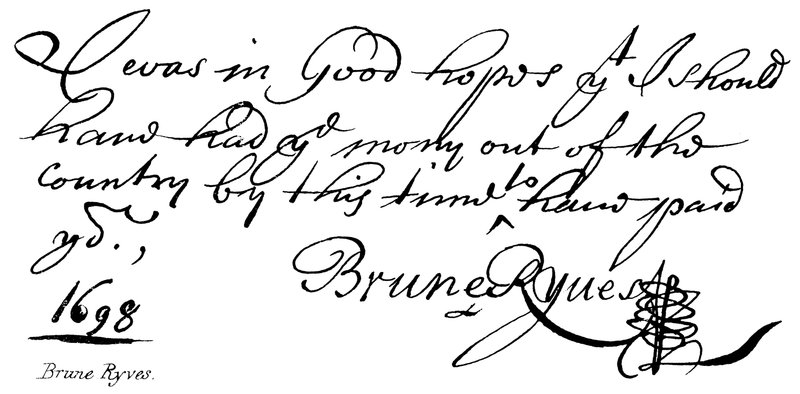 I was in Good hopes yt I should
have had ye mony out of the
country by this time to have paid
yd.,
Brune Ryves
1698
Brune Ryves.